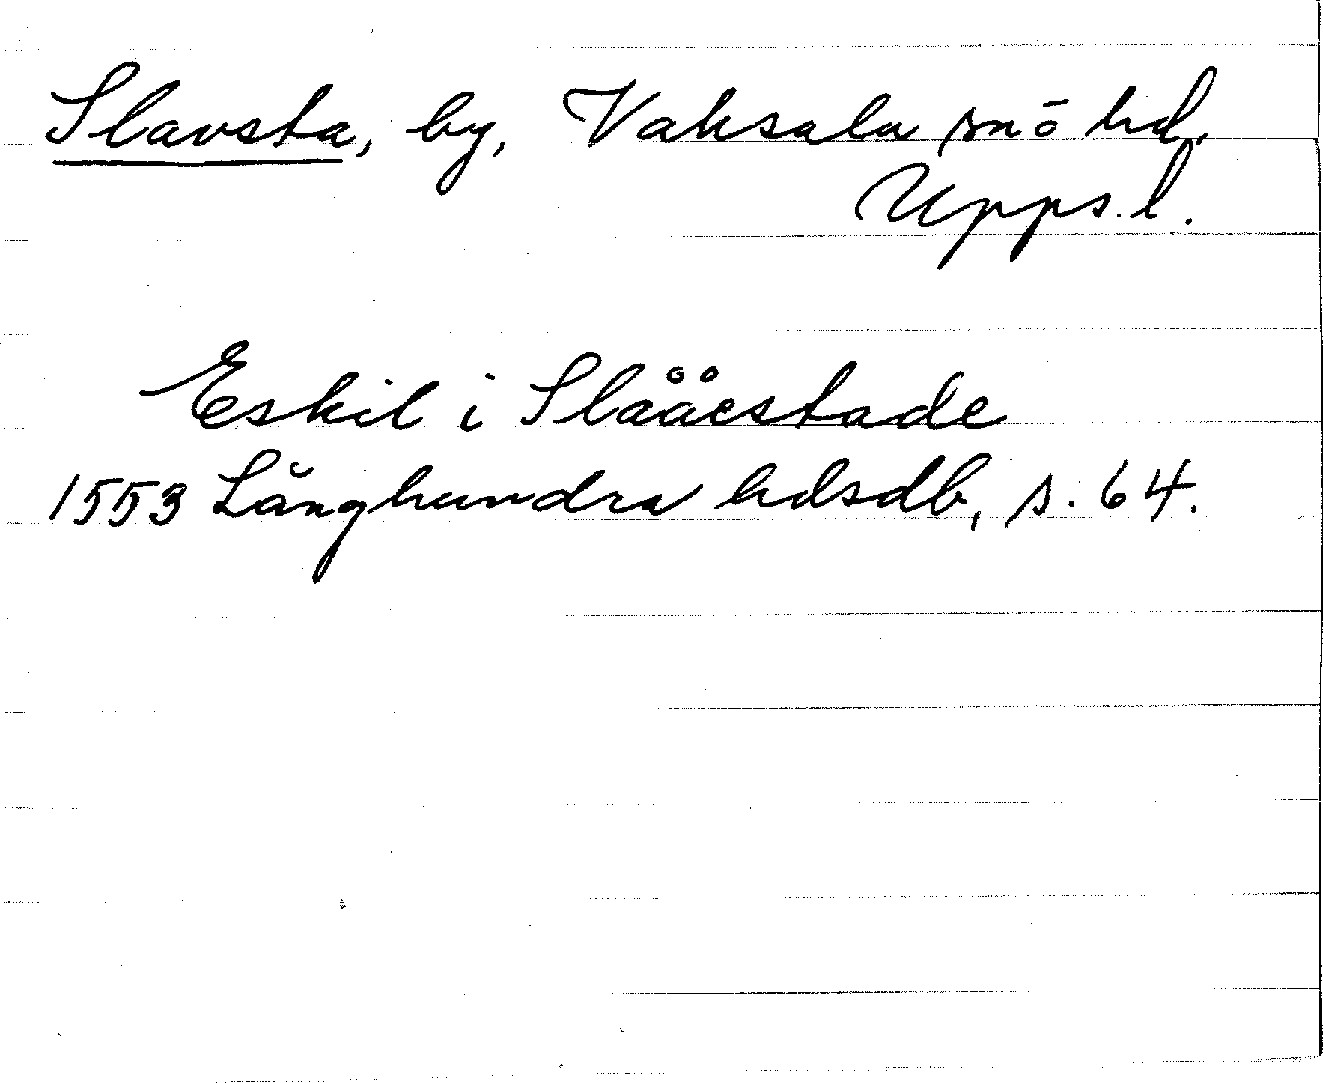 Slavsta, by, Vaksala sn ō hd.
Upps. l.
Eskil i Slååestade
1553 Långhundra hdsdb, s. 64.